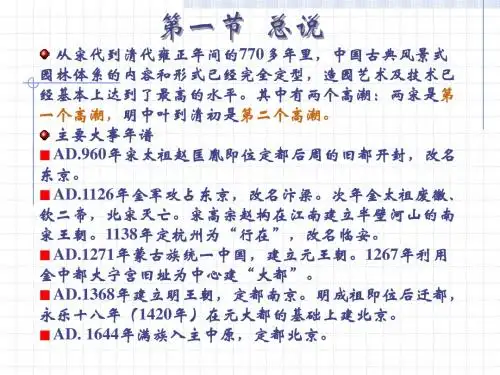 第一节 总说
从宋代到清代雍正年间的770多年里，中国古典风景式
园林体系的内容和形式已经完全定型，造园艺术及技术已
经基本上达到了最高的水平。其中有两个高潮：两宋是第
一个高潮，明中叶到清初是第二个高潮。
主要大事年谱
AD.960年宋太祖赵匡胤即位定都后周的旧都开封，改名
东京。
AD.1126年金军攻占东京，改名汴梁。次年金太祖废徽、
钦二帝，北宋灭亡。宋高宗赵构在江南建立半壁河山的南
宋王朝。1138年定杭州为“行在”，改名临安。
AD.1271年蒙古族统一中国，建立元王朝。1267年利用
金中都大宁宫旧址为中心建“大都”。
AD.1368年建立明王朝，定都南京。明成祖即位后迁都，
永乐十八年（1420年）在元大都的基础上建北京。
AD. 1644年满族入主中原，定都北京。